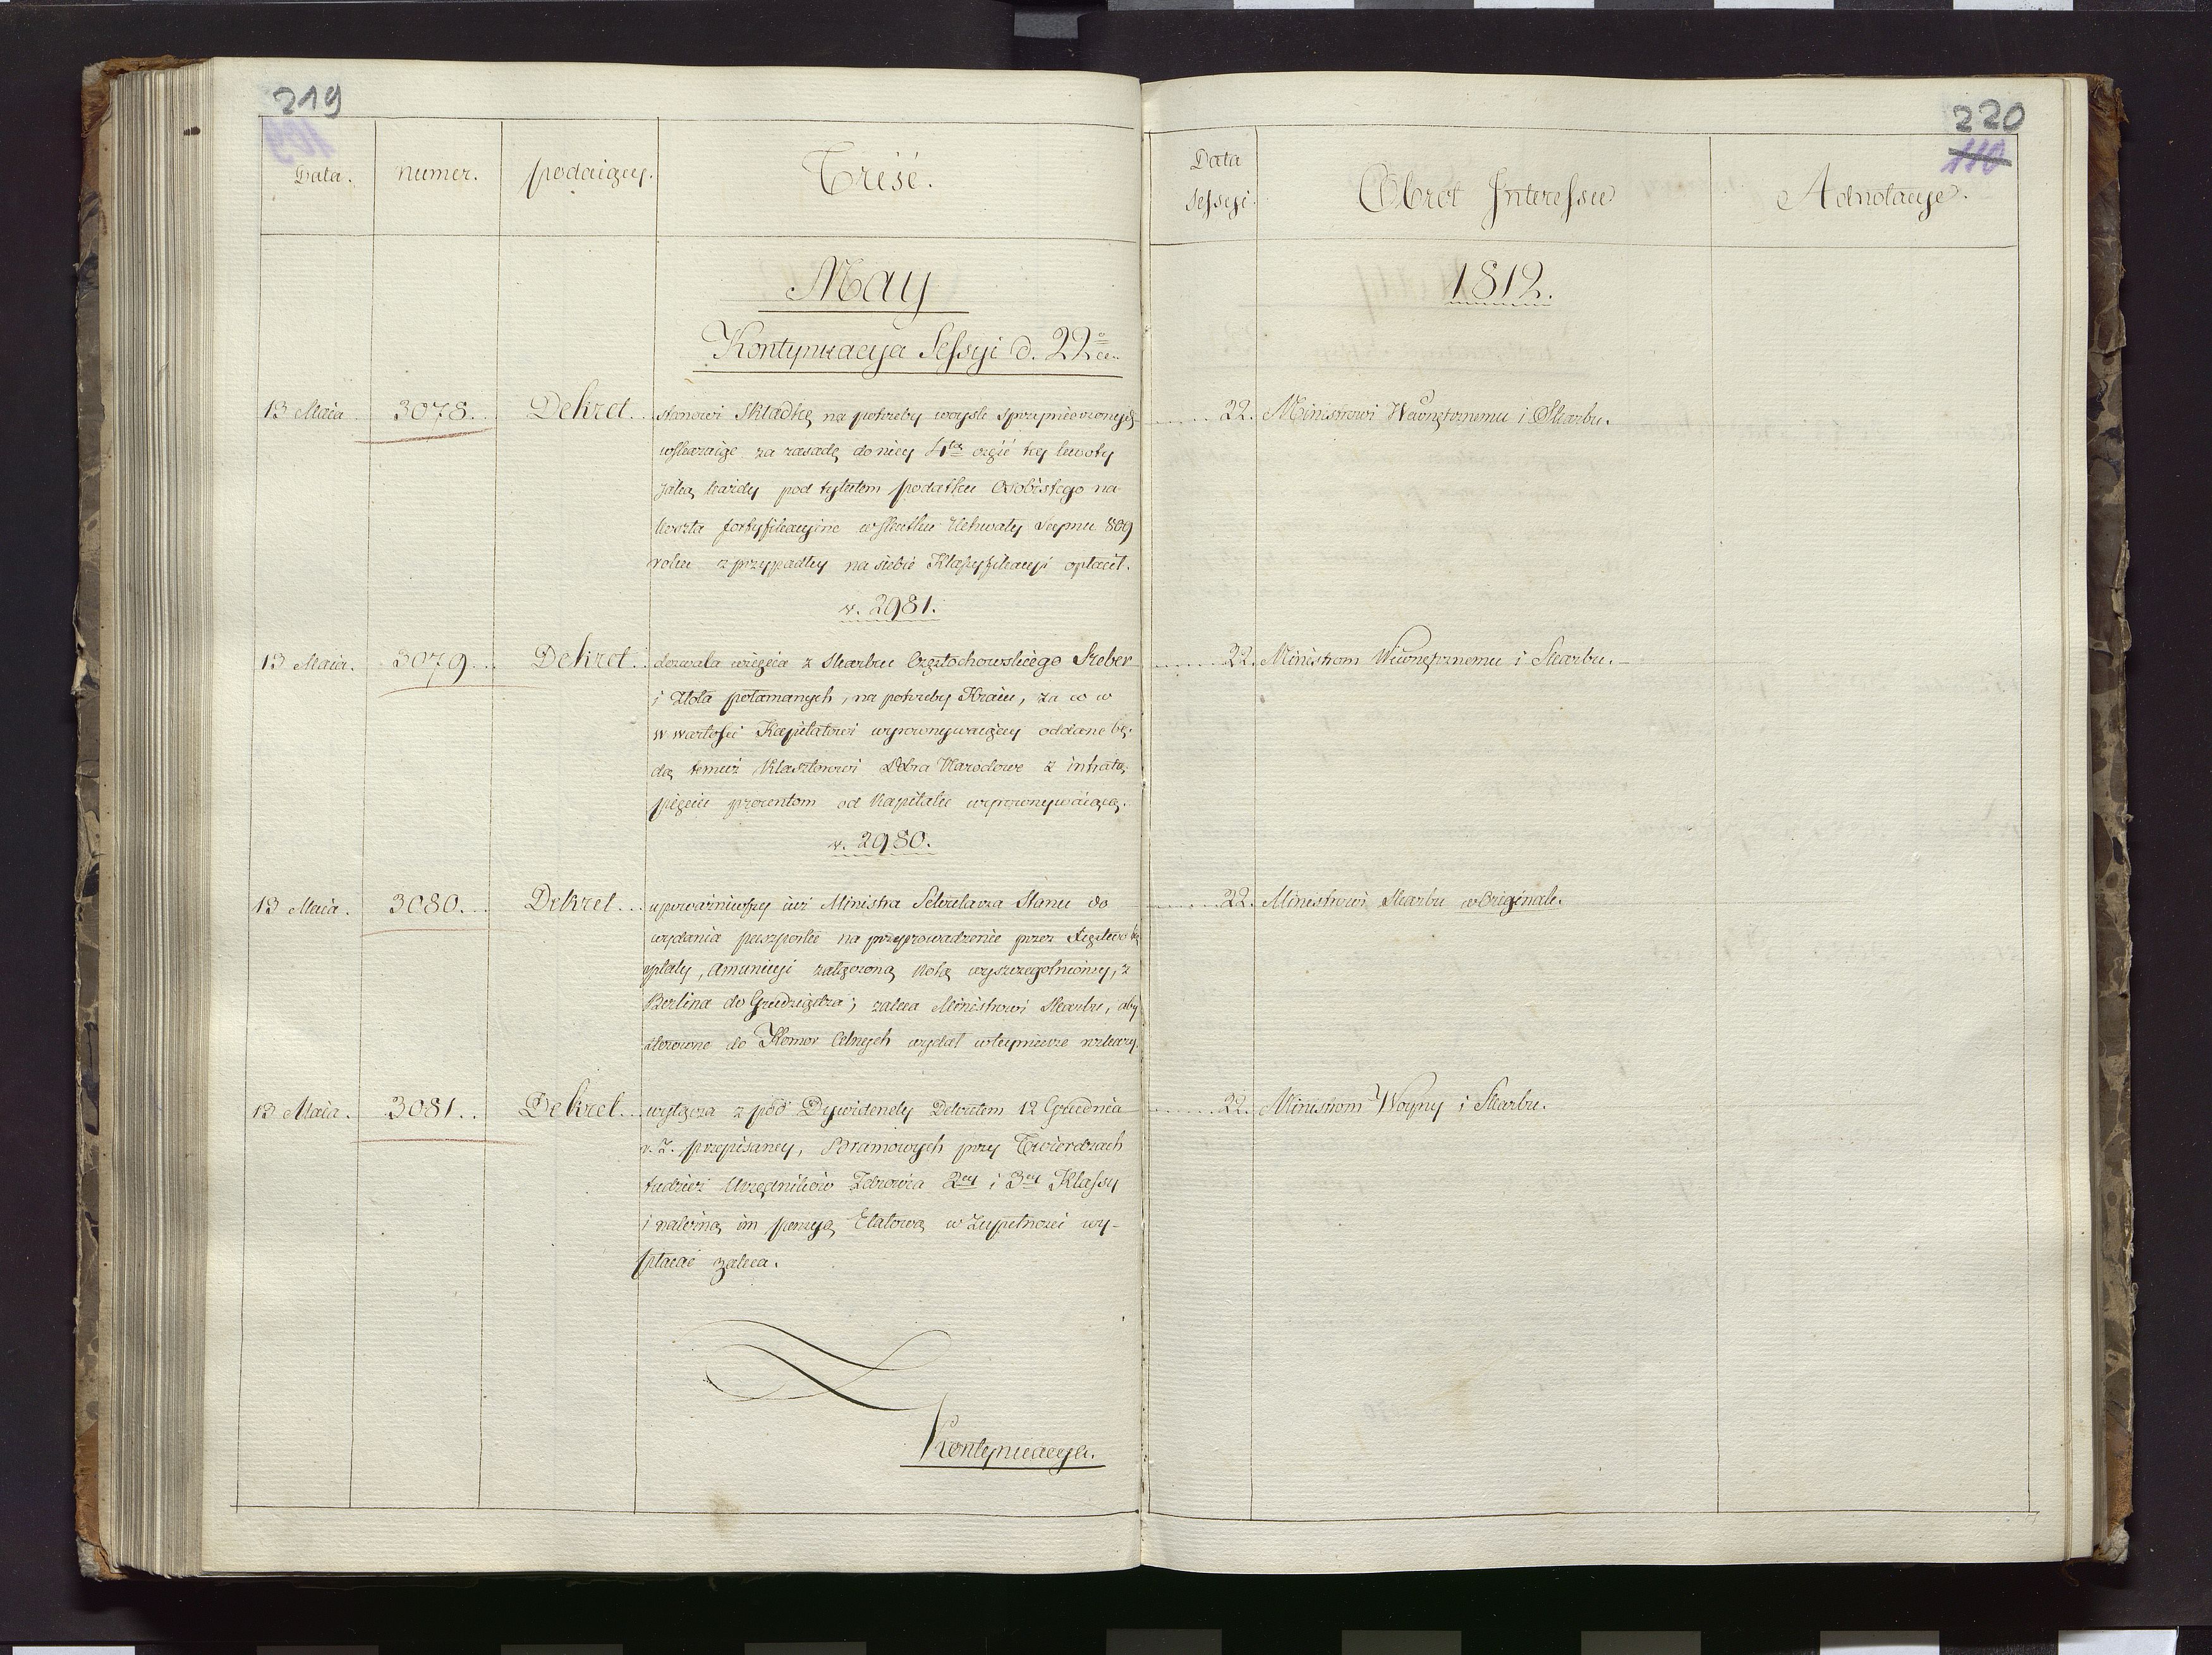 219
109
Data. numer. podaiący. Treść.
May
Kontynuacya Sessyi d. 22a
13 Maia. 3078. Dekret. stanowi Składkę na potrzeby woysk sprzymierzonych
wskazuiąc za zasadę do niey 4tą część tey kwoty
jaką każdy pod tytułem podatku Osobistego na
koszta fortyfikacyine w skutku Uchwały Seymu 809
roku z przypadłey na siebie Klasyfikacyi opłacił.
v. 2981.
13 Maia. 3079. Dekret. dozwala wzięcia z Skarbcu Częstochowskiego Sreber
i Złota połamanych, na potrzeby Kraiu, za co w
w wartości Kapitałowi wyrownywaiącey oddane bę-
dą temuż Klasztorowi Dobra Narodowe z intratą
pięciu procentom od Kapitału wyrownywaiącą.
v. 2980.
13 Maia. 3080. Dekret. upoważniwszy iuż Ministra Sekretarza Stanu do
wydania paszportu na przeprowadzenie przez bez
opłaty, Amunicyi załączoną Notą wyszczegolnioney, z
Berlina do Grudziądza; zaleca Ministrowi Skarbu, aby
stosowne do Komor Celnych wydał w teymierze rozkazy.
13 Maia. 3081. Dekret. wyłącza z pod Dywidendy Dekretem 12 Grudnia
r. z. przepisaney, Bramowych przy Twierdzach
tudzież Urzędników Zdrowia 2ey i 3ey Klassy
i należną im pensyą Etatową w zupełności wy-
płacać zaleca.
Kontynuacya.
220
110
Data Sessyi. Obrot Interessu Adnotacye.
1812.
22. Ministrowi Wewnętrznemu i Skarbu.
22. Ministrom Wewnętrznemu i Skarbu.
22. Ministrowi Skarbu w Originale.
22. Ministrom Woyny i Skarbu.